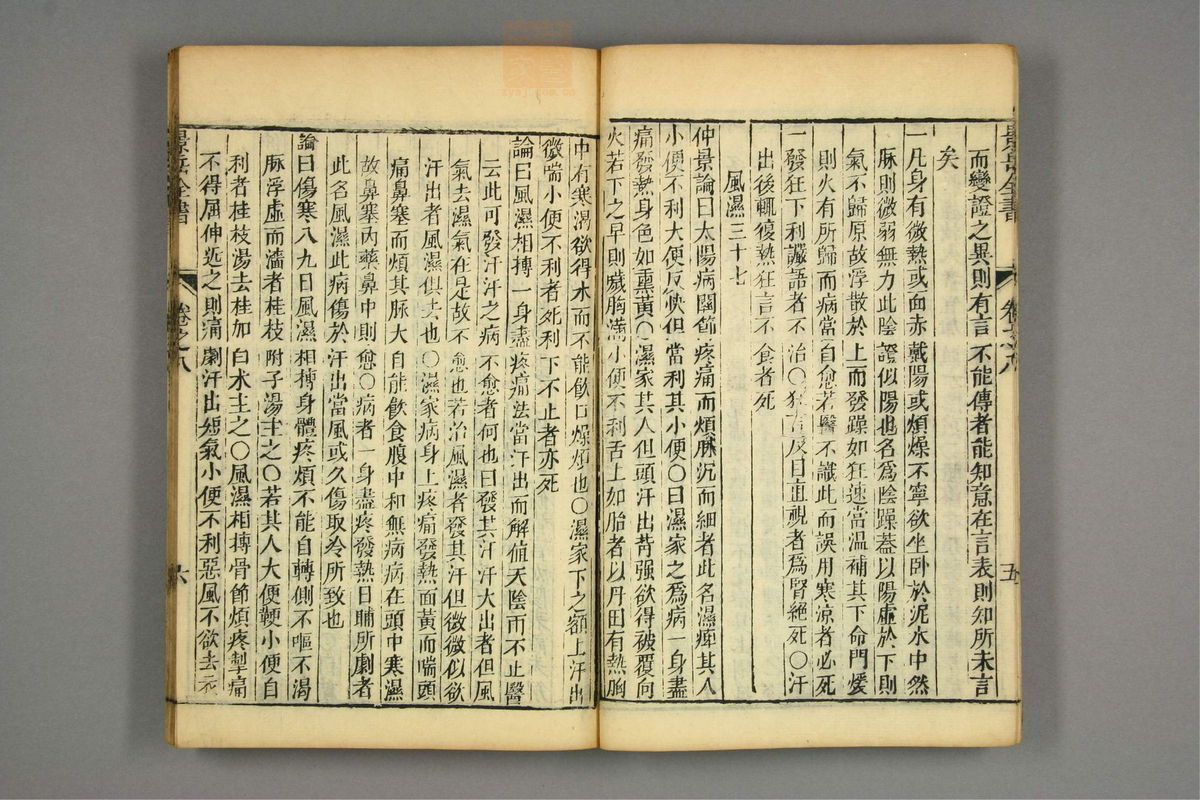 而變證之異則有言不能傳者能知意在言表則知所未言
矣
一凡身有微熱或面赤戴陽或煩燥不寧欲坐卧於泥水中然
脉則微弱無力此陰證似陽也名爲陰躁蓋以陽虛於下則
氣不歸原故浮散於上而發躁如狂速當温補其下命門煖
則火有所歸而病當自愈若醫不識此而誤用寒涼者必死
一發狂下利譫語者不治○狂言反目直視者爲腎絶死○汗
出後輒復熱狂言不食者死
風濕三十七
仲景論曰太陽病關節疼痛而煩脉沉而細者此名濕痺其人
小便不利大便反快但當利其小便○曰濕家之爲病一身盡
痛發熱身色如熏黃○濕家其人但頭汗出背强欲得被覆向
火若下之早則噦胸滿小便不利舌上如胎者以丹田有熱胸
五
中有寒渴欲得水而不能飲口燥煩也○濕家下之額上汗出
微喘小便不利者死利下不止者亦死
論曰風濕相搏一身盡疼痛法當汗出而解值天陰雨不止醫
云此可發汗汗之病不愈者何也曰發其汗汗大出者但風
氣去濕氣在是故不愈也若治風濕者發其汗但微微似欲
汗出者風濕俱去也○濕家病身上疼痛發熱面黃而喘頭
痛鼻塞而煩其脉大自能飲食腹中和無病病在頭中寒濕
故鼻塞内藥鼻中則愈○病者一身盡疼發熱日晡所劇者
此名風濕此病傷於汗出當風或久傷取冷所致也
論曰傷寒八九日風濕相搏身體疼煩不能自轉側不嘔不渴
脉浮虛而濇者桂枝附子湯主之○若其人大便鞕小便自
利者桂枝湯去桂加白术主之○風濕相搏骨節煩疼掣痛
不得屈伸近之則痛劇汗出短氣小便不利惡風不欲去衣
景岳全書 卷之八 六